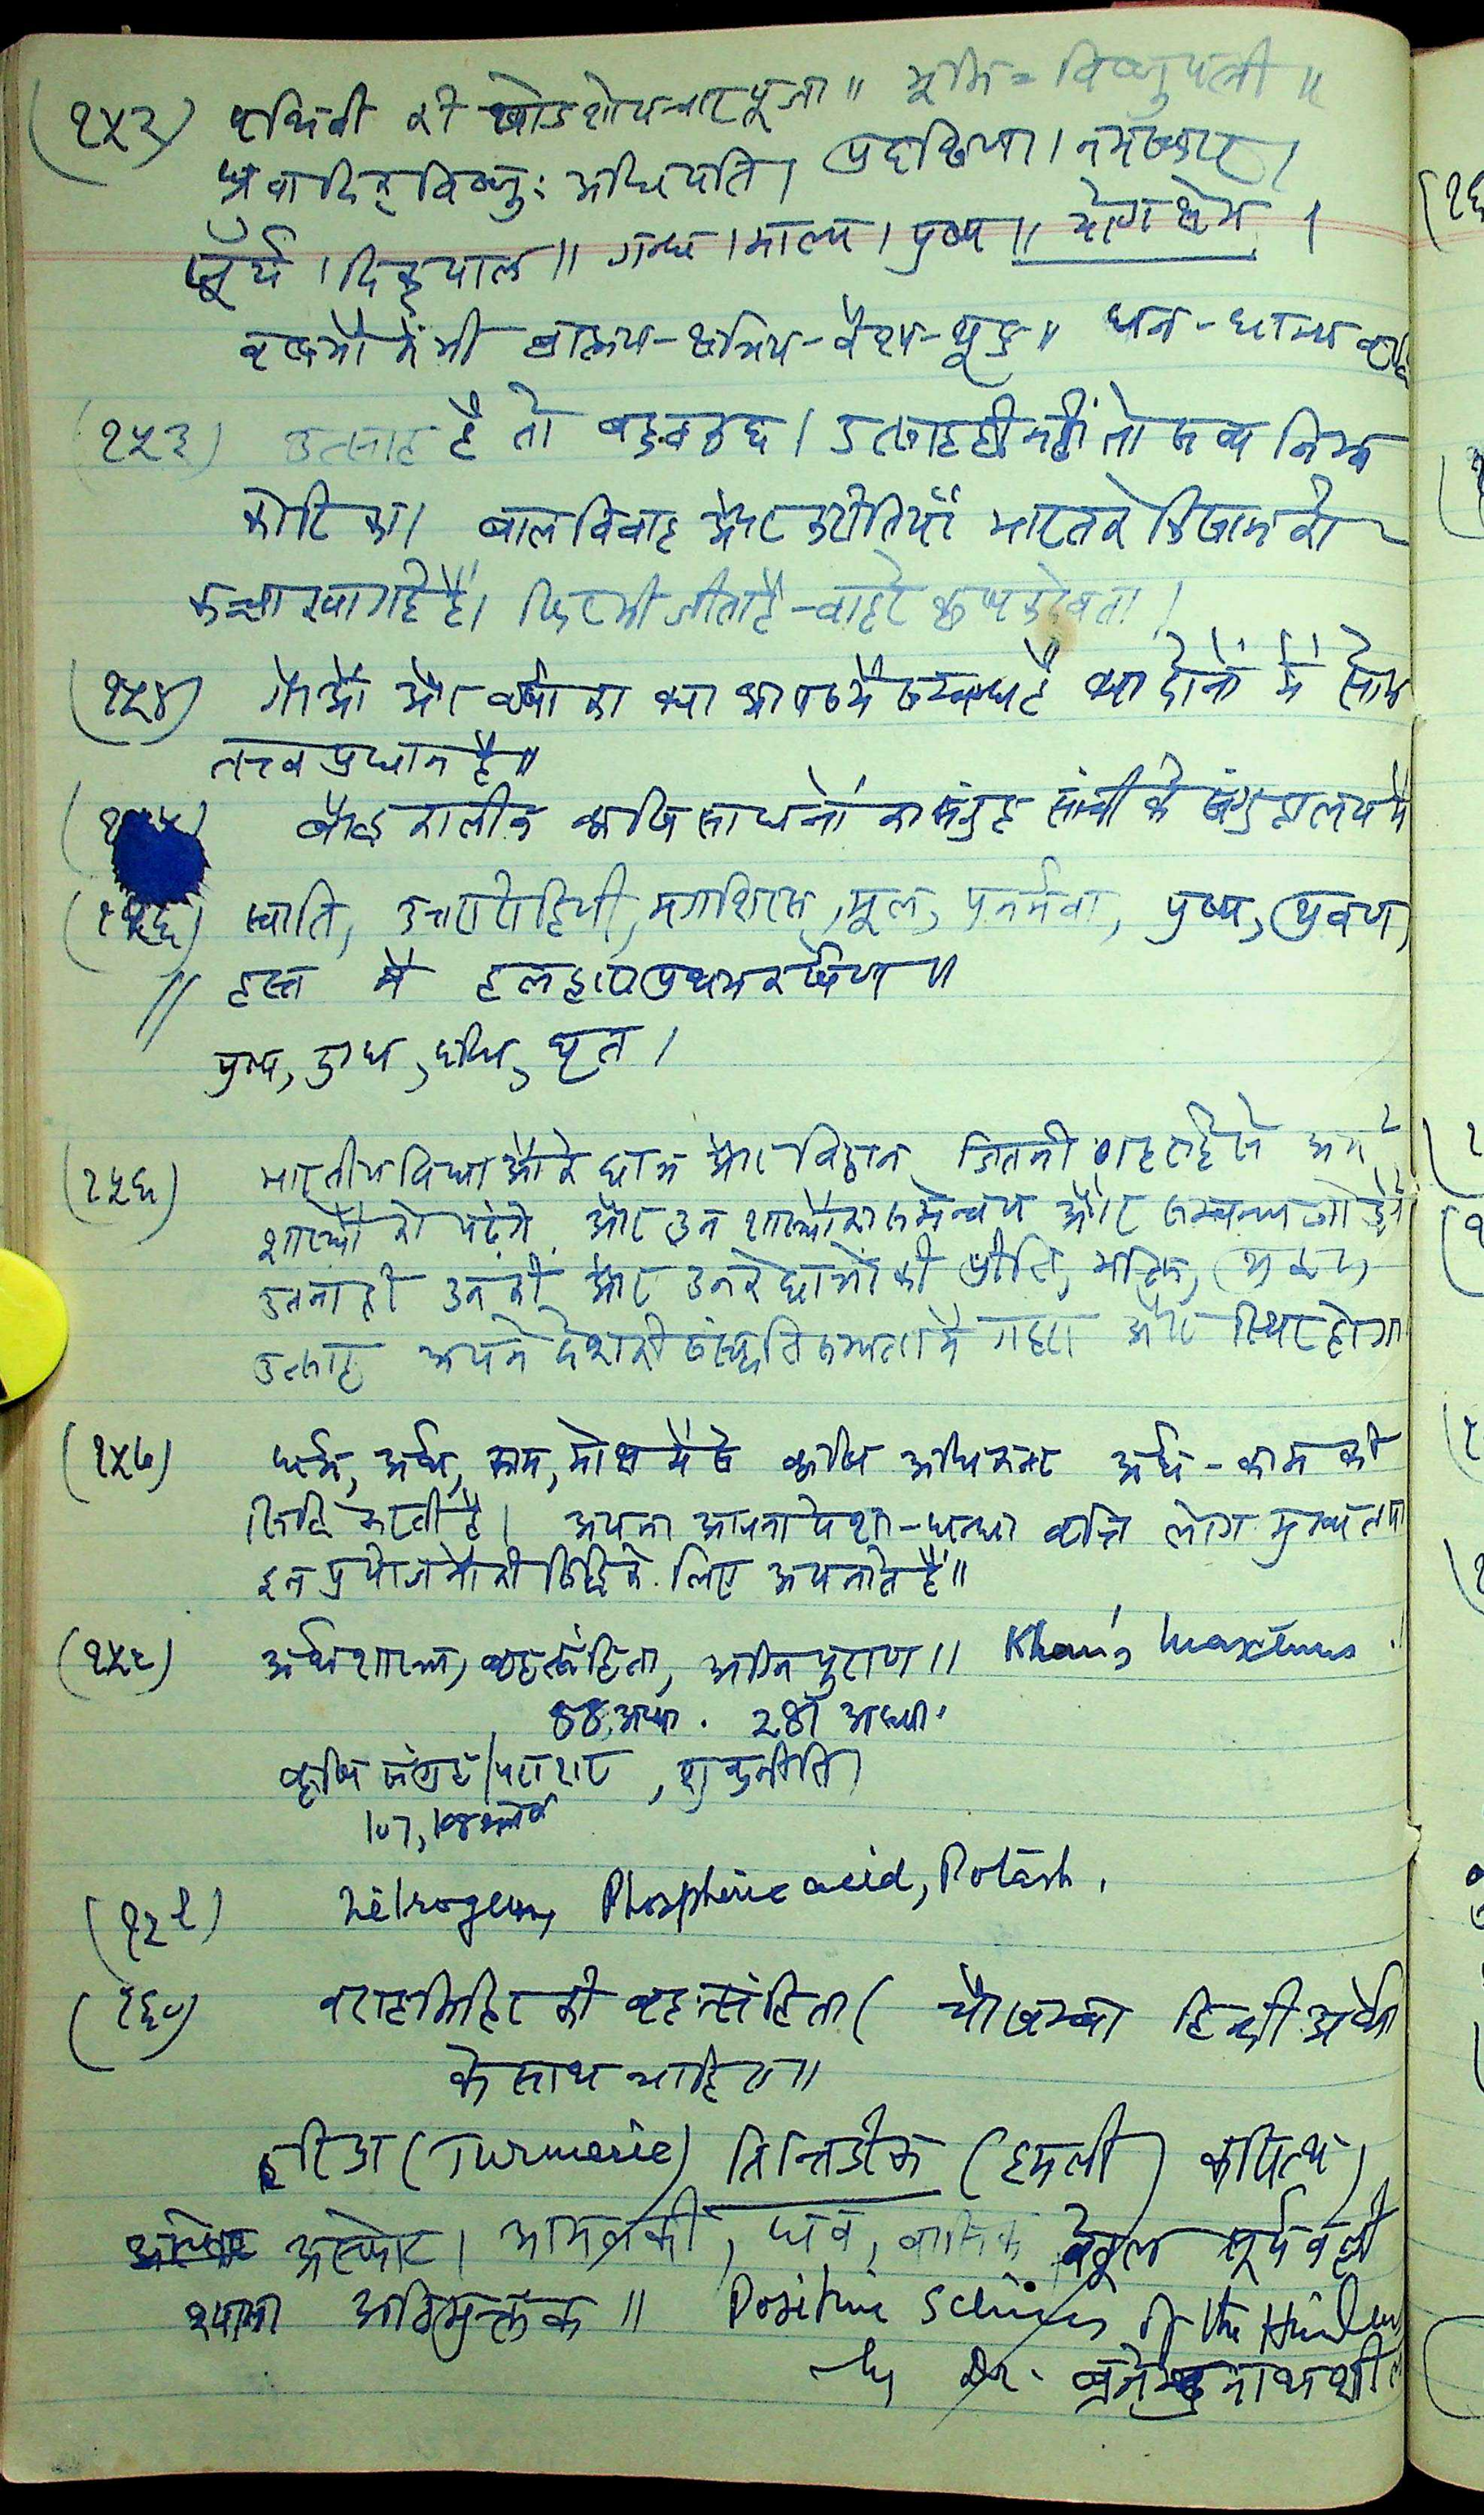 (१५२) पृथिवी की षोडशोपचार पूजा॥ भूमि = विष्णुपत्नी॥
ध्रुवादिक् विष्णुः अधिपति। प्रदक्षिणा। नमस्कार।
सूर्य। दिक्पाल॥ गन्ध। माल्य। पुष्प॥ योगक्षेम।
वृक्षों में भी ब्राह्मण-क्षत्रिय-वैश्य-शूद्र॥ धन-धान्य
(१५३) उत्साह है तो सब कुछ। उत्साह ही नहीं तो सब निम्न
कोटि का। बालविवाह और कुरीतियाँ भारत के किसान को
कच्चा खा गई हैं। फिर भी जीता है - वाह रे कृषक देवता।
(१५४) गौओं और वर्षा का क्या आपस में सम्बन्ध है क्या दोनों में सोम
तत्त्व प्रधान है॥
(१५५) बौद्ध कालीन कृषि साधनों का संग्रह सांची के संग्रहालय में
(१५६) स्वाति, उत्तरा रोहिणी, मृगशिरस, मूल, पुनर्नवा, पुष्य, श्रवण,
// हस्त में हल द्वारा प्रथम कर्षण॥
पुष्प, दुग्ध, दधि, घृत।
(१५६) भारतीय विद्याओं के छात्र और विद्वान् जितनी गहराई से अपने
शास्त्रों को पढ़ेंगे और उन शास्त्रों का समन्वय और सम्बन्ध जोड़ेंगे
उतना ही उनकी और उनके छात्रों की प्रीति, भक्ति, श्रद्धा,
उत्साह अपने देश की संस्कृति सभ्यता में गहरा और स्थिर होगा
(१५७) धर्म, अर्थ, काम, मोक्ष में से कृषि अधिकतर अर्थ-काम की
सिद्धि करती है। अपना अपना पेशा-धन्धा वृत्ति लोग मुख्यतया
इन प्रयोजनों की सिद्धि के लिए अपनाते हैं॥
(१५८) अर्थशास्त्र, बृहत्संहिता, अग्नि पुराण॥ Khana's Maxims.
55 अध्या. 281 अध्या.
कृषि संग्रह/पराशर, शुक्रनीति
107, 108 श्लोक
(१५९) Nitrogen, Phosphoric acid, Potash.
(१६०) वराहमिहिर की बृहत्संहिता (चौखम्बा हिन्दी अर्थों
के साथ चाहिए॥
हरिद्रा (Turmeric) तिन्तिडीक (इमली) कपित्थ,
अस्फोट। आमलकी, धव, वासिक वेतुल सूर्यवल्ली
श्यामा अतिमुक्तक॥ Positive Sciences of the Hindus
by Dr. ब्रजेन्द्रनाथ शील